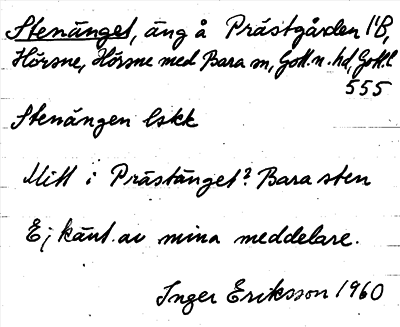 Stenänget, äng å Prästgården 1:8,
Hörsne, Hörsne med Bara sn, Gotl. n. hd, Gotl. l.
555
Stenängen lskk
Mitt i Prästänget? Bara sten
Ej känt av mina meddelare.
Inger Eriksson 1960